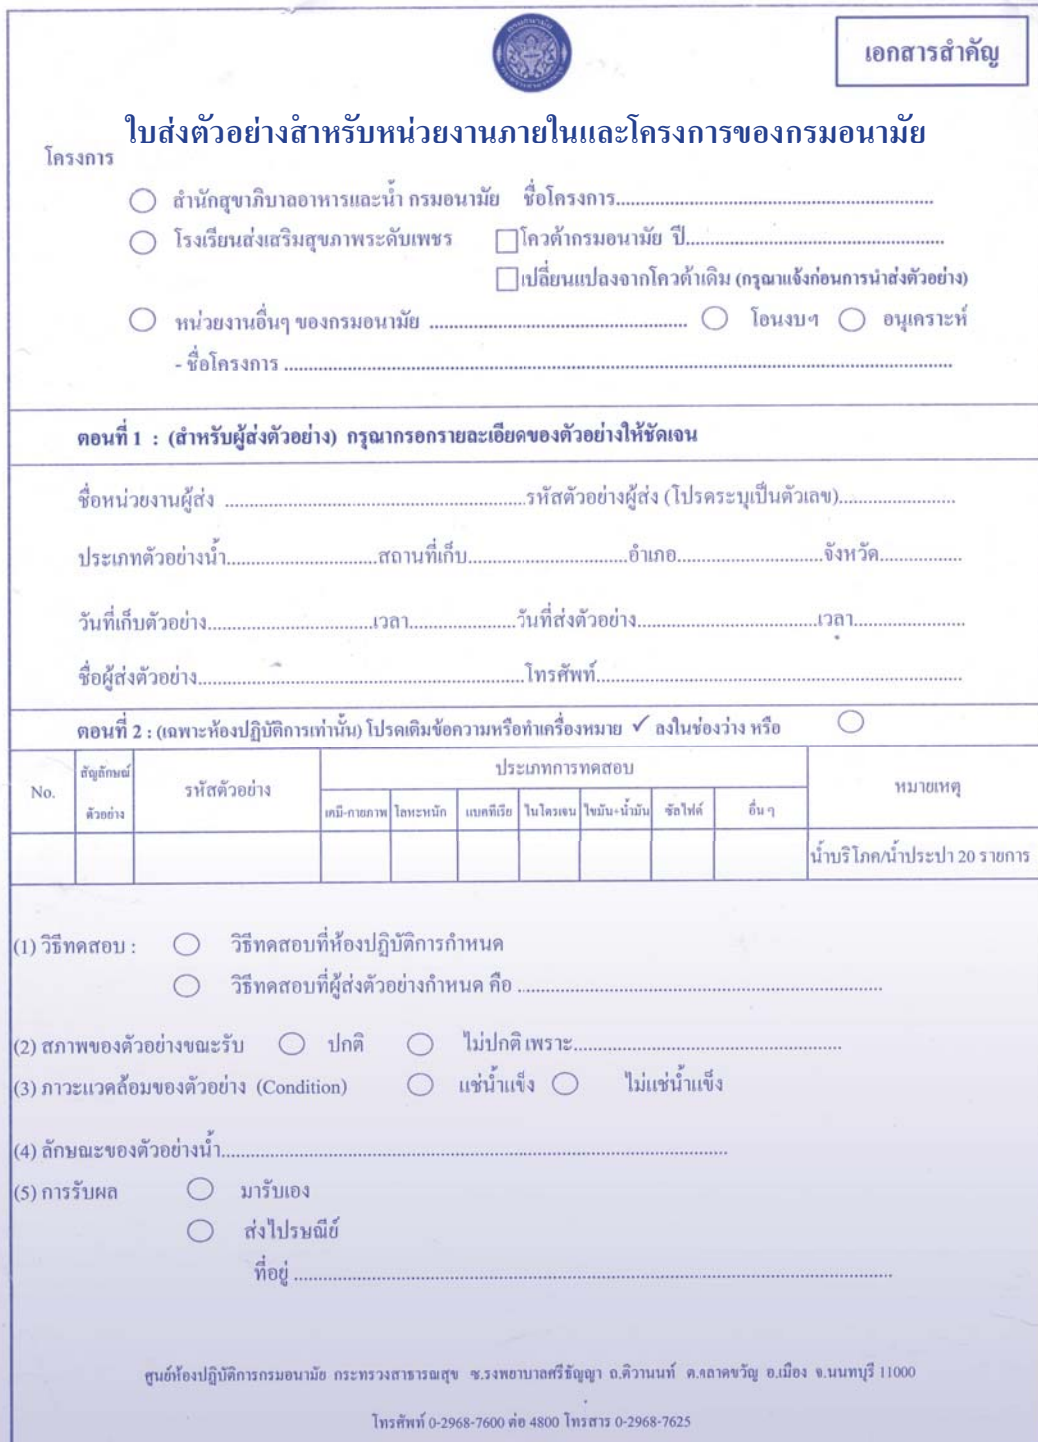 เอกสารสำคัญ
ใบส่งตัวอย่างสำหรับหน่วยงานภายในและโครงการของกรมอนามัย
โครงการ
สำนักสุขาภิบาลอาหารและน้ำ กรมอนามัย ชื่อโครงการ........................................
โรงเรียนส่งเสริมสุขภาพระดับเพชร โควต้ากรมอนามัย ปี........................................
เปลี่ยนแปลงจากโควต้าเดิม (กรุณาแจ้งก่อนการนำส่งตัวอย่าง)
หน่วยงานอื่นๆ ของกรมอนามัย ........................................ โอนงบฯ อนุเคราะห์
- ชื่อโครงการ ........................................
ตอนที่ 1 : (สำหรับผู้ส่งตัวอย่าง) กรุณากรอกรายละเอียดของตัวอย่างให้ชัดเจน
ชื่อหน่วยงานผู้ส่ง ........................................รหัสตัวอย่างผู้ส่ง (โปรดระบุเป็นตัวเลข)....................
ประเภทตัวอย่างน้ำ....................สถานที่เก็บ....................อำเภอ....................จังหวัด....................
วันที่เก็บตัวอย่าง....................เวลา....................วันที่ส่งตัวอย่าง....................เวลา....................
ชื่อผู้ส่งตัวอย่าง........................................โทรศัพท์........................................
ตอนที่ 2 : (เฉพาะห้องปฏิบัติการเท่านั้น) โปรดเติมข้อความหรือทำเครื่องหมาย ✓ ลงในช่องว่าง หรือ
No. สัญลักษณ์ตัวอย่าง รหัสตัวอย่าง ประเภทการทดสอบ หมายเหตุ
เคมี-กายภาพ โลหะหนัก แบคทีเรีย ไนโตรเจน ไขมัน+น้ำมัน ซัลไฟด์ อื่น ๆ
น้ำบริโภค/น้ำประปา 20 รายการ
(1) วิธีทดสอบ : วิธีทดสอบที่ห้องปฏิบัติการกำหนด
วิธีทดสอบที่ผู้ส่งตัวอย่างกำหนด คือ ........................................
(2) สภาพของตัวอย่างขณะรับ ปกติ ไม่ปกติ เพราะ........................................
(3) ภาวะแวดล้อมของตัวอย่าง (Condition) แช่น้ำแข็ง ไม่แช่น้ำแข็ง
(4) ลักษณะของตัวอย่างน้ำ........................................
(5) การรับผล มารับเอง
ส่งไปรษณีย์
ที่อยู่ ........................................
ศูนย์ห้องปฏิบัติการกรมอนามัย กระทรวงสาธารณสุข ซ.รงพยาบาลศรีธัญญา ถ.ติวานนท์ ต.ตลาดขวัญ อ.เมือง จ.นนทบุรี 11000
โทรศัพท์ 0-2968-7600 ต่อ 4800 โทรสาร 0-2968-7625